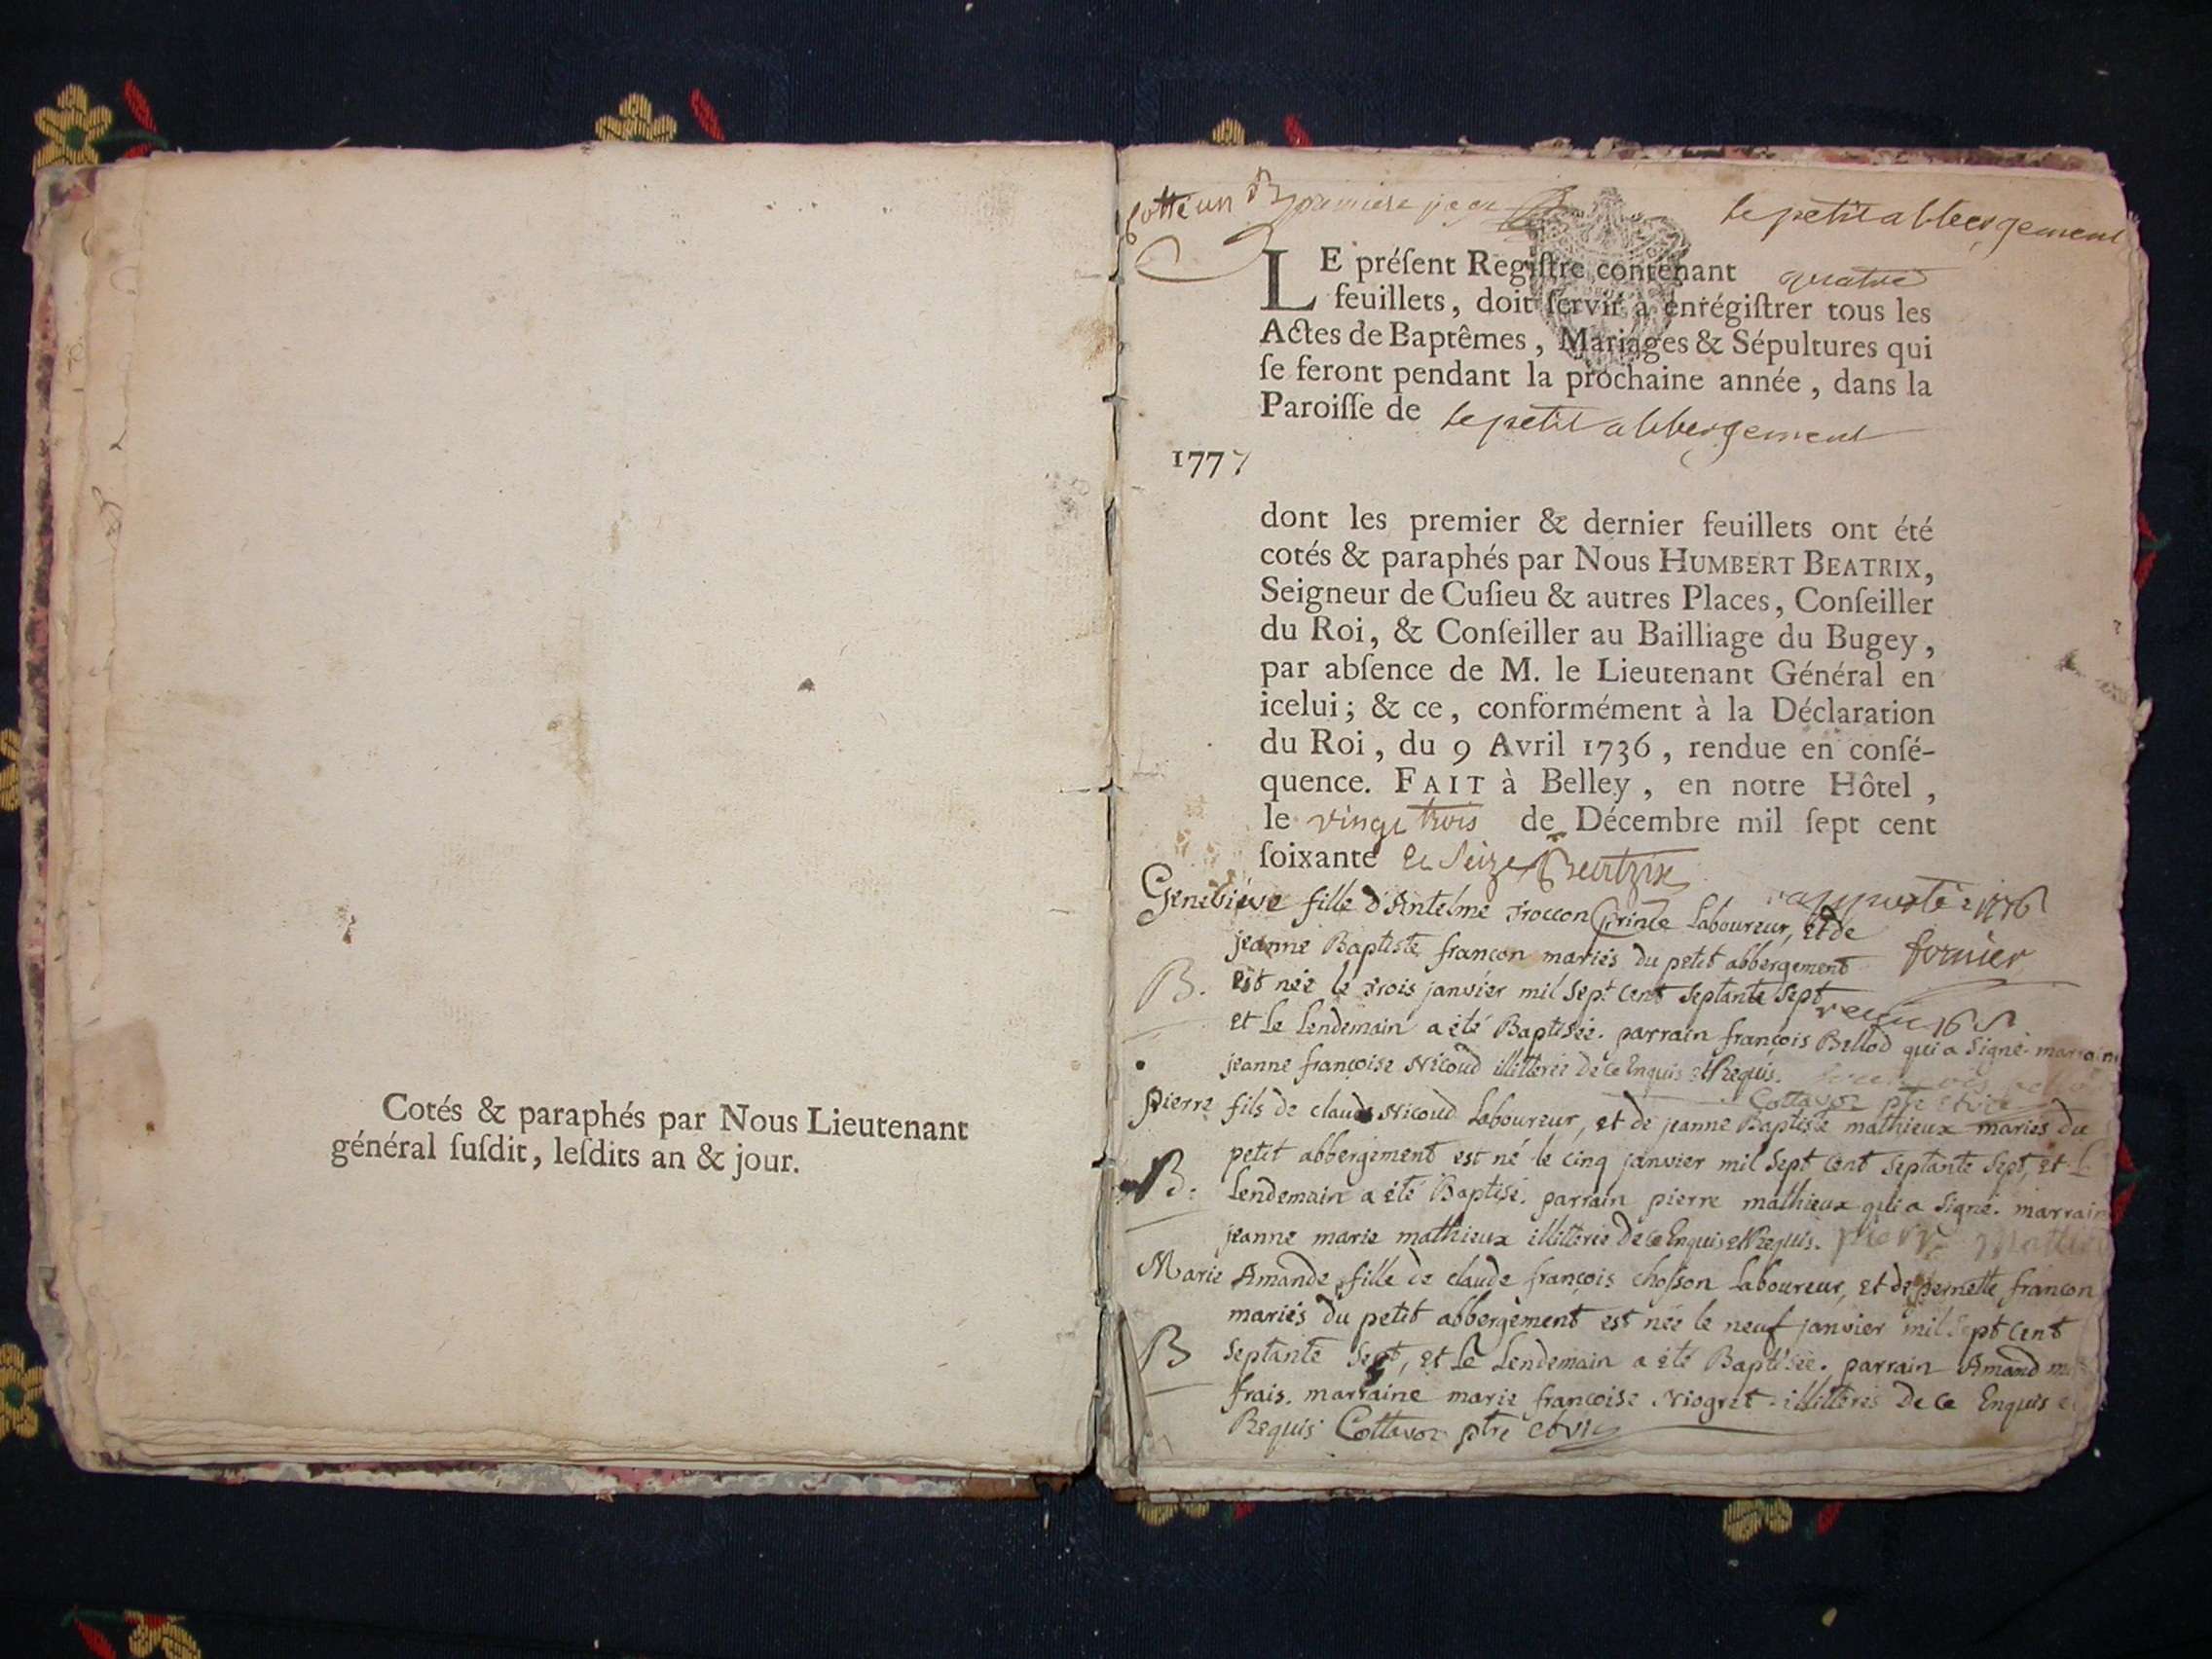 Cotés & paraphés par Nous Lieutenant
général suſdit, leſdits an & jour.
Cotté un B premiere page
le petit abbergement
LE préſent Regiſtre contenant quatre
feuillets, doit ſervir à enrégiſtrer tous les
Actes de Baptêmes, Mariages & Sépultures qui
ſe feront pendant la prochaine année, dans la
Paroiſſe de le petit abbergement
1777
dont les premier & dernier feuillets ont été
cotés & paraphés par Nous HUMBERT BEATRIX,
Seigneur de Cuſieu & autres Places, Conſeiller
du Roi, & Conſeiller au Bailliage du Bugey,
par abſence de M. le Lieutenant Général en
icelui; & ce, conformément à la Déclaration
du Roi, du 9 Avril 1736, rendue en conſé-
quence. FAIT à Belley, en notre Hôtel,
le vingt trois de Décembre mil ſept cent
ſoixante et Seize Beatrix
Geneviéve fille d'Antelme troccon prince Laboureur, et de
jeanne Baptiste françon mariés du petit abbergement
B. est née le trois janvier mil Sept Cent Septante Sept
et Le Lendemain a été Baptisée. parrain françois Bellod qui a Signé. marraine
jeanne françoise Nicoud illitterée de ce Enquis et Requis.
Cottavoz ptre et vic
Pierre fils de claude Nicoud Laboureur, et de jeanne Baptiste mathieux mariés du
petit abbergement est né le cinq janvier mil Sept Cent Septante Sept, et L
B. Lendemain a été Baptisé. parrain pierre mathieux qui a Signé. marrain
jeanne marie mathieux illitterée de ce Enquise et Requis. pierre Mathieu
Marie Amande fille de claude françois chosson Laboureur, et de pernette françon
mariés du petit abbergement est née le neuf janvier mil Sept Cent
B Septante Sept, et Le Lendemain a été Baptisée. parrain Amand
frais. marraine marie françoise Niogret illitterés De ce Enquis et
Requis Cottavoz ptre et vic